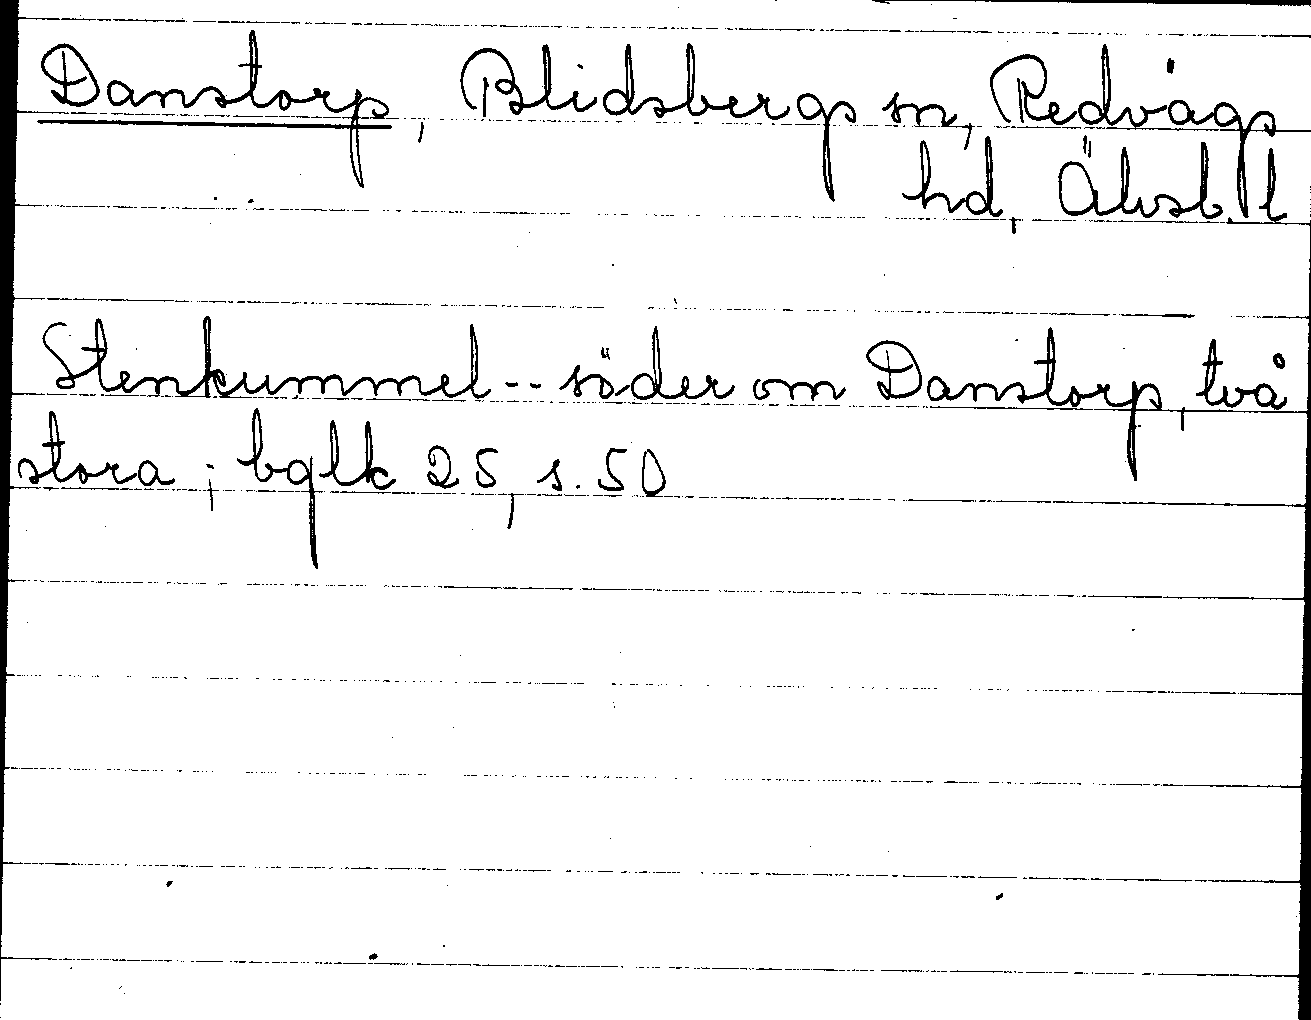 Danstorp, Blidsbergs sn, Redvägs
hd, Älvsb. l
Stenkummel -- söder om Danstorp, två
stora; bglk 25, s. 50